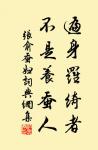 遍身羅綺者
不是養蠶人
張俞蚕妇詞典網集